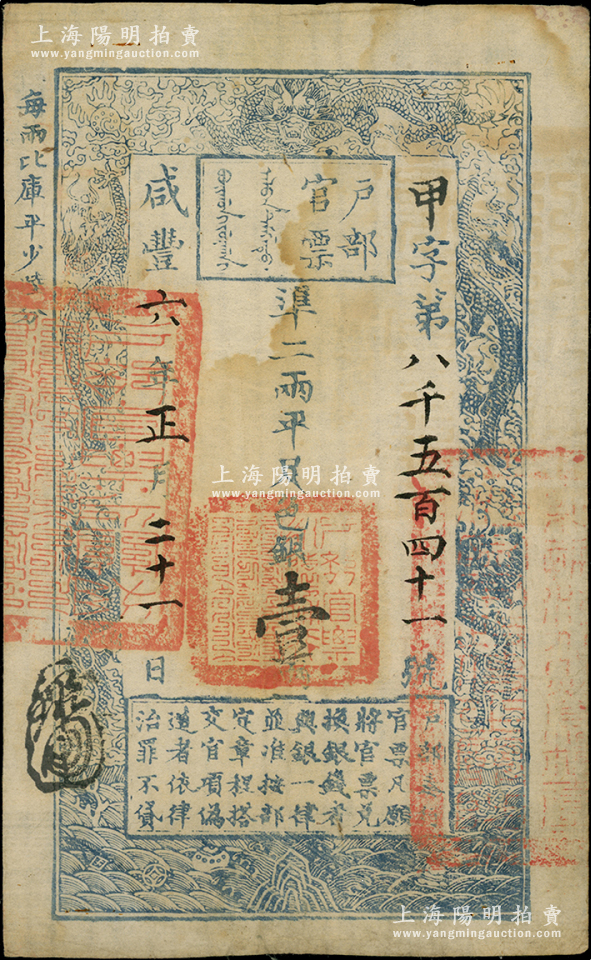 上海陽明拍賣
www.yangmingauction.com
每兩比庫平少
戶部
官票
甲字第八千五百四十一號
準二兩平足色銀壹
咸豐六年正月二十一日
戶部
官票凡願
將官票兌
換銀錢者
與銀一律
並准按部
定章程搭
交官項偽
造者依律
治罪不貸
上海陽明拍賣
www.yangmingauction.com
上海陽明拍賣
www.yangmingauction.com